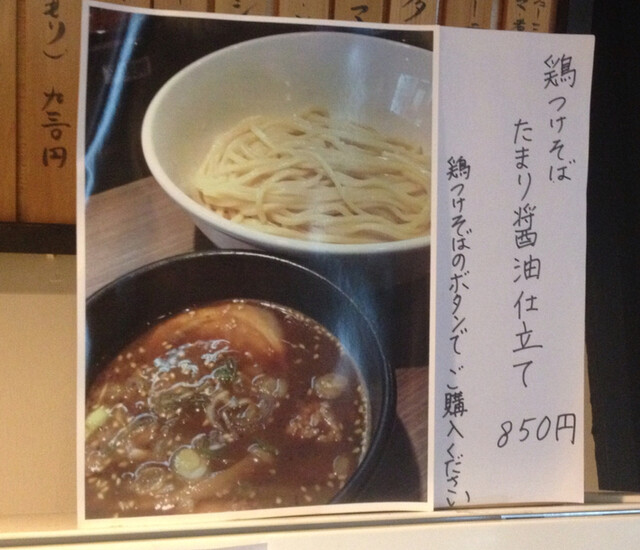 鶏つけそば
たまり醤油仕立て
850円
鶏つけそばのボタンで ご購入ください
九三〇円